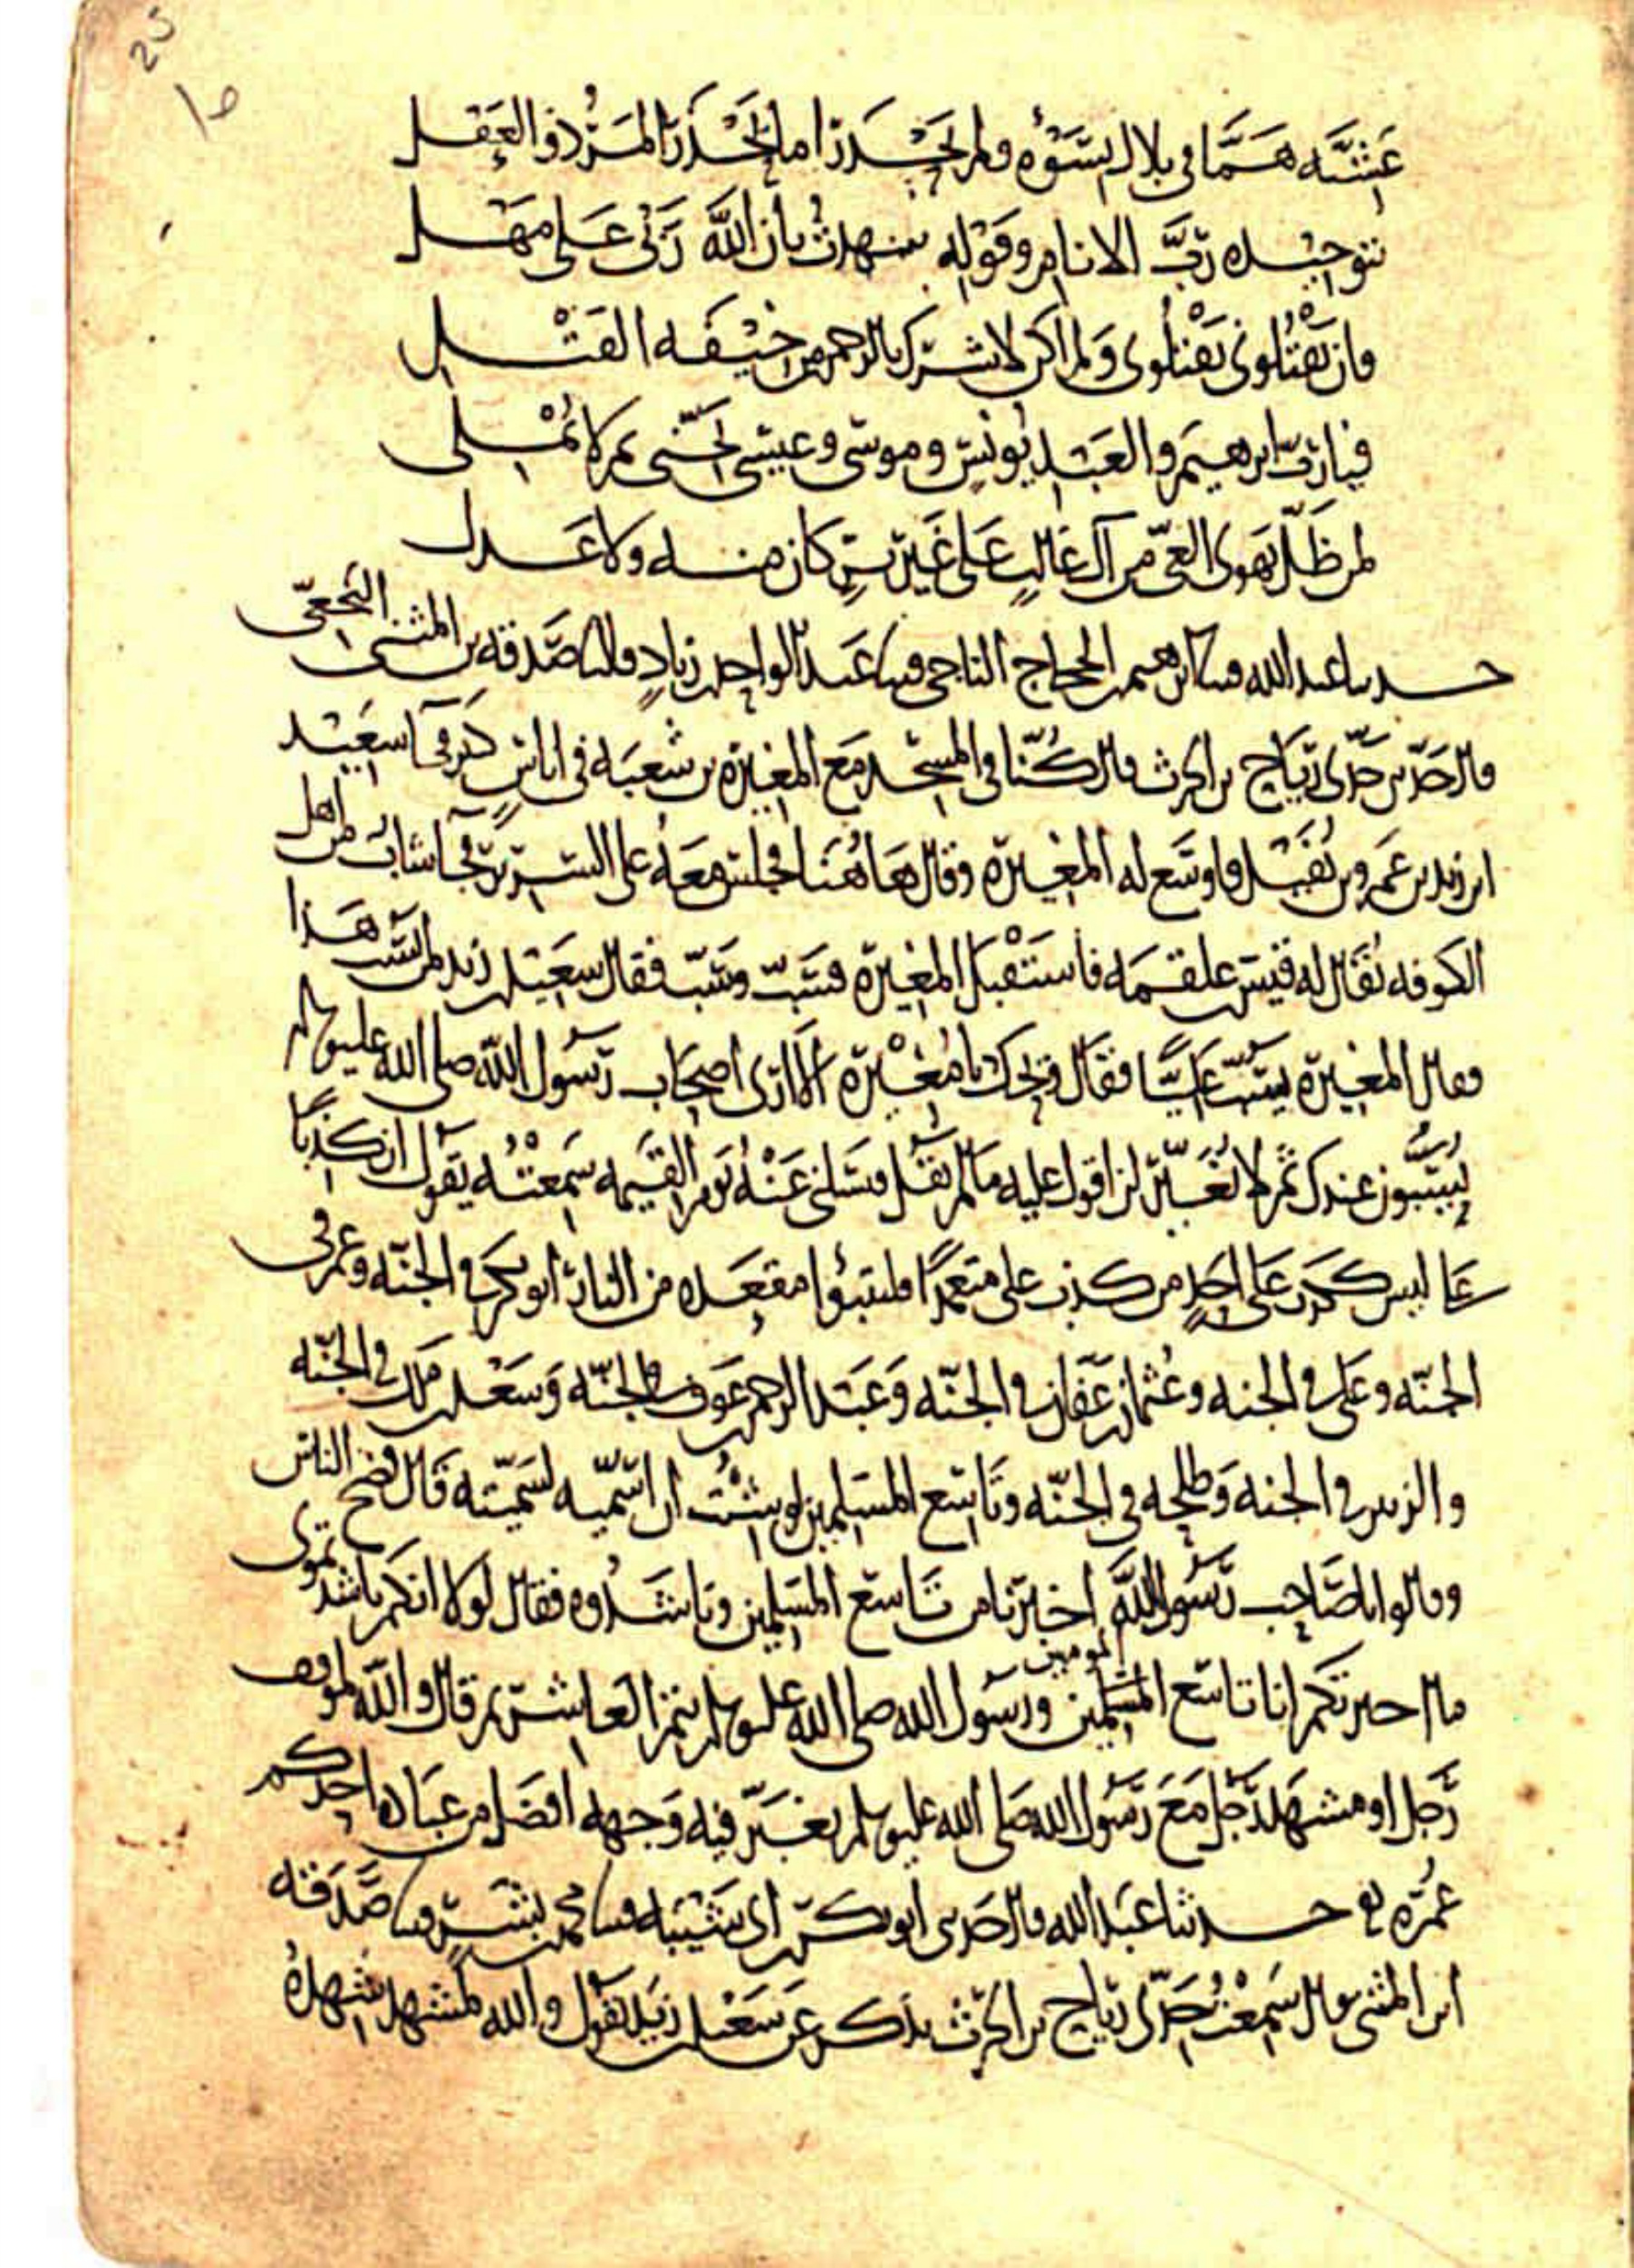 25
عَشيَّه هَمَّا في بلال بسَوْءه ولم يَحْذرا ما يَحْذَر المَرْؤ ذو العَقل
بتوحيْده ربَّ الانام وقَوْله شهدتُ بأن اللّهَ رَبّى عَلى مَهْل
فان يَقْتُلونى يَقْتلُونى وَلم اكن لاشرك بالرحمن من خيْفَه القَتْل
فيا ربّ ابرهيم والعَبْد يُونس وموسى وعيسى نَجّنى ثم لا تُمْلى
لمن ظَلّ يَهوى الغَىّ من آل غالبٍ عَلى غَير بِرٍ كان منه ولا عَدل
حدثنا عبد الله قثنا ابرهيم بن الحجاج الناجى قثنا عَبد الواحد بن زيادٍ قال ثنا صَدقه بن المثنى النخعىّ
قال حَدّثنى جَدّى رياح بن الحرث قال كُنّا في المسجد مَع المغيره بن شعبَه في اناسٍ كَثر فجآ سعَيْد
ابن زيد بن عَمرو بن نُفَيْل فاوسَع له المغيره وقال هَاهُنا فجلس معَهُ على السرير فجآ شاب من اهل
الكوفه يُقال له قيس بن علقمه فاستَقْبَل المغيرة فسَبّ وسَبّ فقال سعَيْد بن زيد لمن يسُبّ هَذا
فقال المغيرة يسُبّ عَليًّا فقال ويحك يا مُغيْرة الا ارى اصحَاب رَسُول اللّه صلى الله عليه وسلم
يُسَبُّون عندك ثم لا تُغَيّر لن اقول عليه مَا لم يَقُل فيسَلنى عَنْهُ يَوم القيمه سَمِعْتُه يَقول ان كذبًا
عَليّ ليس ككذب عَلى احَدٍ من كذب على متعمّدًا فليتبوّا مقعَده من النار ابو بكر في الجنّه وعمر في
الجنّه وعَلى في الجنه وعُثمان بن عَفّان في الجنّه وَعَبد الرحمن بن عَوف في الجنّه وَسَعْد بن ملك في الجنّه
والزبير في الجنه وَطلحه في الجنّه وتَاسِع المسلمين لو شئْتُ ان اسَمّيه لسَمّيته قَال فضج الناس
وقالوا يا صَاحِب رَسُول اللّه اخبرنا من تَاسع المسلمين وناشَدُوه فقال لولا انكم ناشدتمونى
ما اخبرتكم انا تاسع المسلمين المومنين ورسُول الله صلى الله عليه وسلم يتم العَاشر ثم قال والله لموقف
رَجل او مشهَد رَجل مَعَ رَسُول الله صَلى الله عليه وسلم يغبَرّ فيه وَجهه افضَل من عبَاده احدكم
عُمُره حدثنا عَبد الله قال حَدثنى ابو بكر بن ابى شَيْبَه قثنا محمد بن بشرٍ قثنا صَدَقه
ابن المثنى قال سَمِعْتُ جَدّى رياح بن الحرث يذكر عن سَعيد بن زَيد يَقُول والله لمشهد شَهدهُ